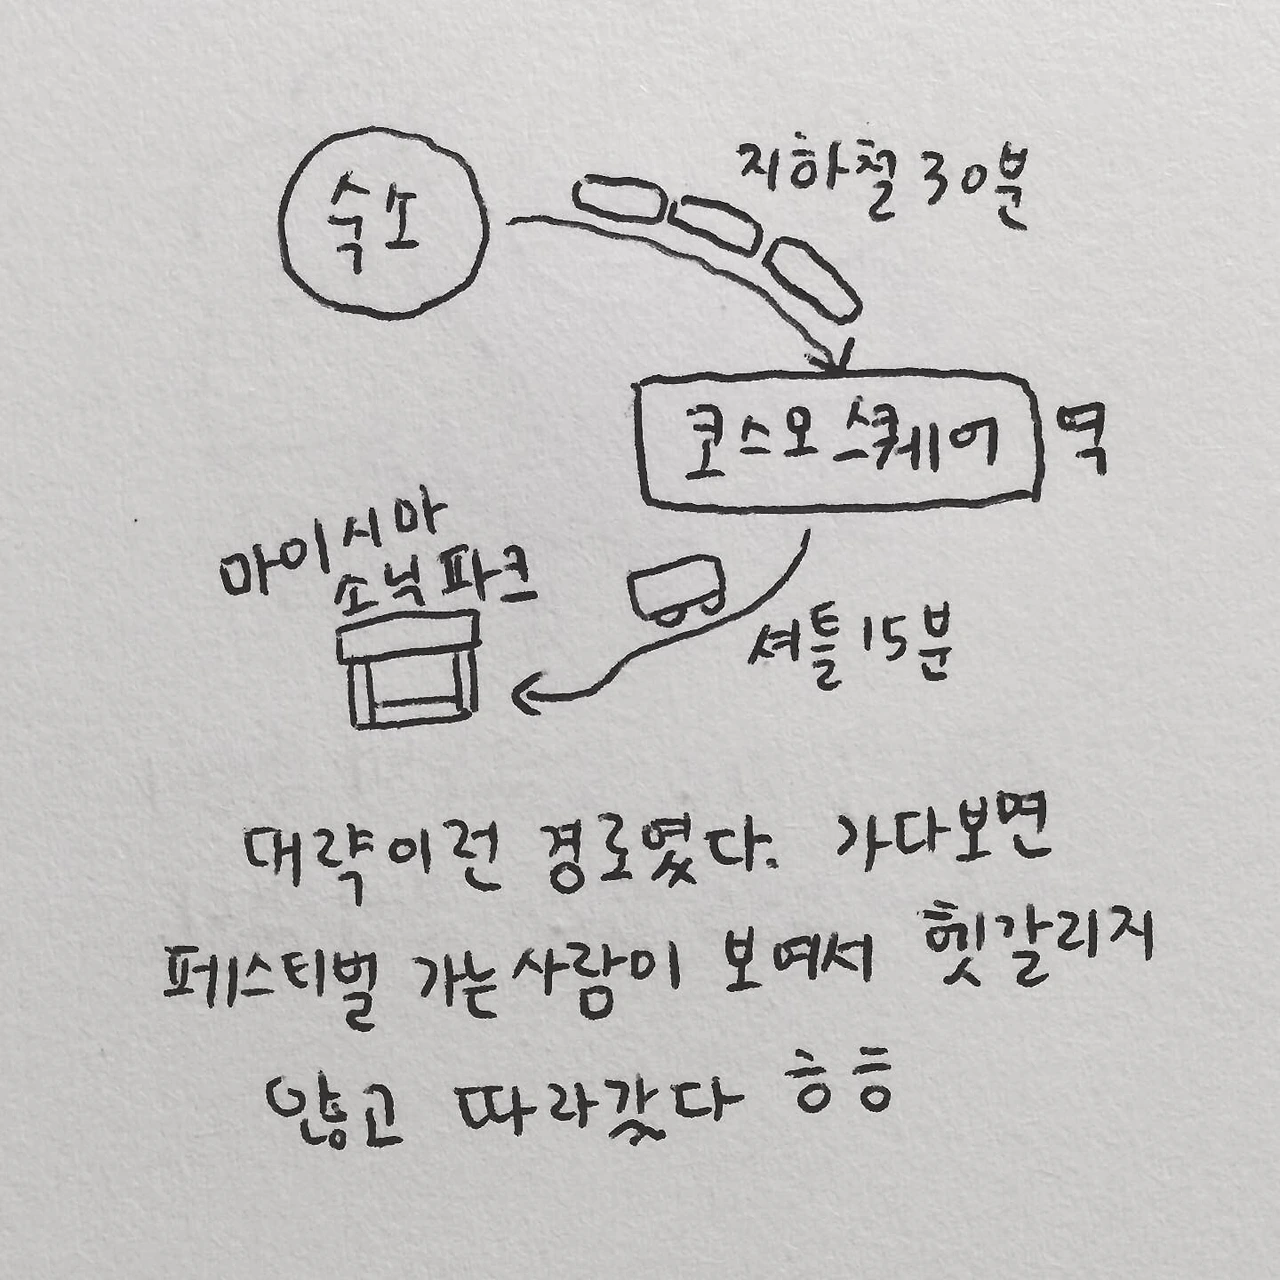 숙소
지하철 30분
코스모스퀘어 역
마이시마
소닉파크
셔틀 15분
대략 이런 경로였다. 가다보면
페스티벌 가는 사람이 보여서 헷갈리지
않고 따라갔다 ㅎㅎ